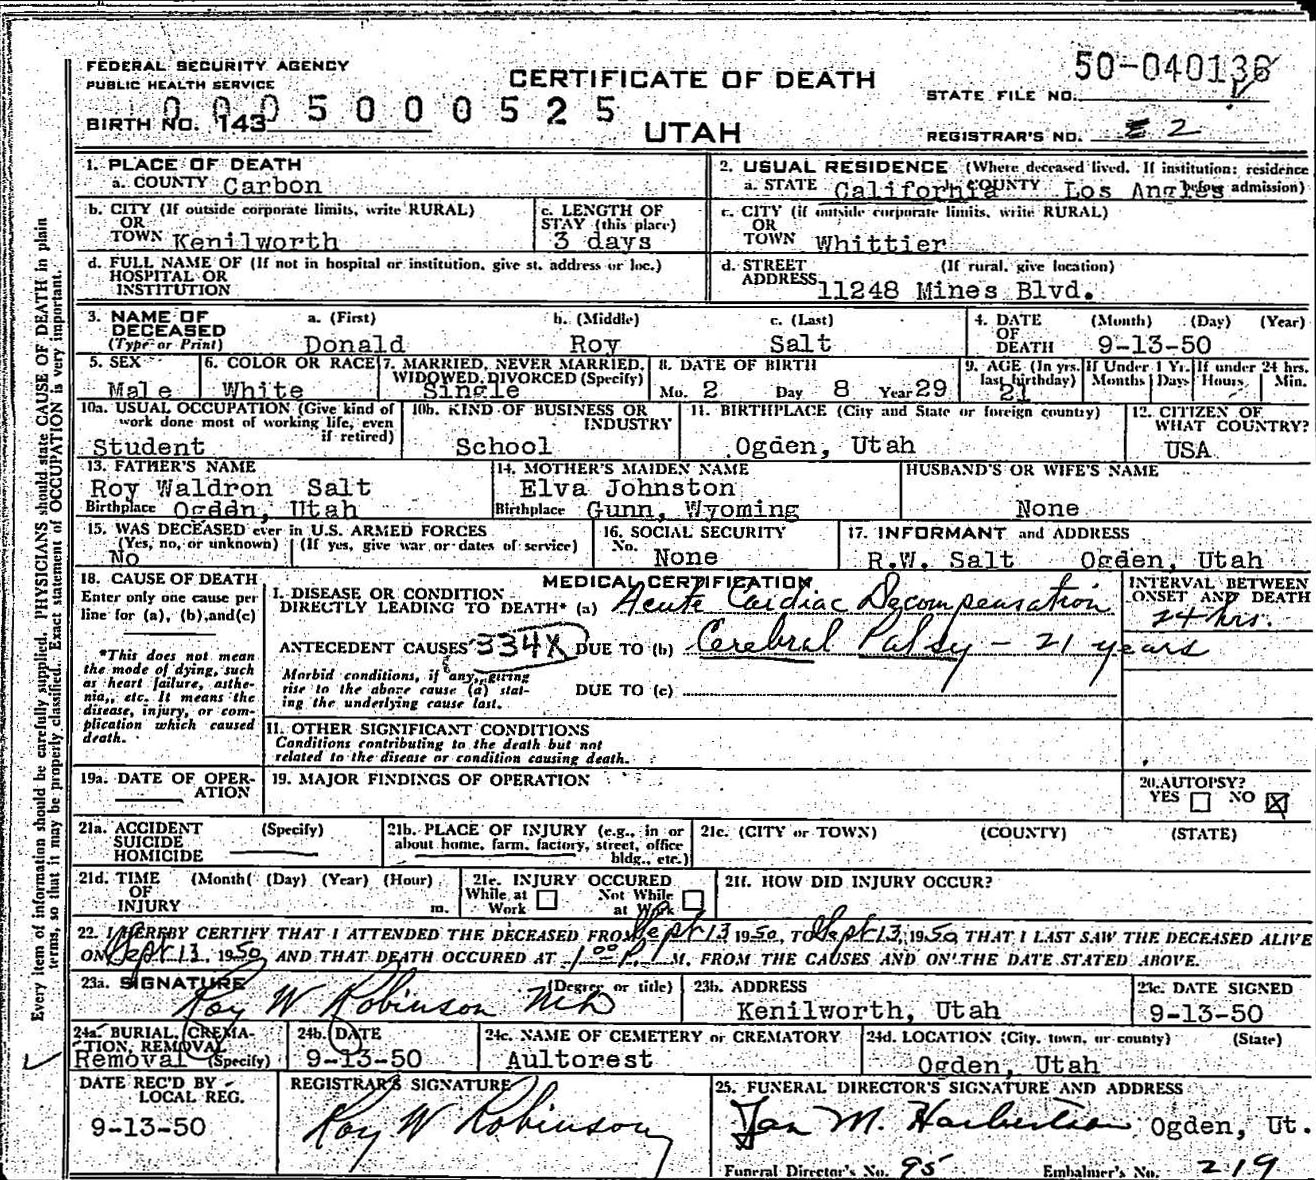 FEDERAL SECURITY AGENCY
PUBLIC HEALTH SERVICE
CERTIFICATE OF DEATH
UTAH
50-040136
STATE FILE NO.
0005000525
BIRTH NO. 143
REGISTRAR'S NO. 2
1. PLACE OF DEATH
a. COUNTY Carbon
2. USUAL RESIDENCE (Where deceased lived. If institution: residence before admission)
a. STATE California COUNTY Los Angles
b. CITY (If outside corporate limits, write RURAL)
OR
TOWN Kenilworth
c. LENGTH OF
STAY (this place)
3 days
c. CITY (if outside corporate limits, write RURAL)
OR
TOWN Whittier
d. FULL NAME OF (If not in hospital or institution, give st. address or loc.)
HOSPITAL OR
INSTITUTION
d. STREET (If rural, give location)
ADDRESS 11248 Mines Blvd.
3. NAME OF
DECEASED
(Type or Print)
a. (First) b. (Middle) c. (Last)
Donald Roy Salt
4. DATE (Month) (Day) (Year)
OF
DEATH 9-13-50
5. SEX
Male
6. COLOR OR RACE
White
7. MARRIED, NEVER MARRIED,
WIDOWED, DIVORCED (Specify)
Single
8. DATE OF BIRTH
Mo. 2 Day 8 Year 29
9. AGE (In yrs.
last birthday)
21
If Under 1 Yr.
Months Days
If under 24 hrs.
Hours Min.
10a. USUAL OCCUPATION (Give kind of
work done most of working life, even
if retired)
Student
10b. KIND OF BUSINESS OR
INDUSTRY
School
11. BIRTHPLACE (City and State or foreign country)
Ogden, Utah
12. CITIZEN OF
WHAT COUNTRY?
USA
13. FATHER'S NAME
Roy Waldron Salt
Birthplace Ogden, Utah
14. MOTHER'S MAIDEN NAME
Elva Johnston
Birthplace Gunn, Wyoming
HUSBAND'S OR WIFE'S NAME
None
15. WAS DECEASED ever in U.S. ARMED FORCES
(Yes, no, or unknown) (If yes, give war or dates of service)
No
16. SOCIAL SECURITY
No. None
17. INFORMANT and ADDRESS
R.W. Salt Ogden, Utah
18. CAUSE OF DEATH
Enter only one cause per
line for (a), (b), and (c)
*This does not mean
the mode of dying, such
as heart failure, asthe-
nia, etc. It means the
disease, injury, or com-
plication which caused
death.
MEDICAL CERTIFICATION
I. DISEASE OR CONDITION
DIRECTLY LEADING TO DEATH* (a) Acute Cardiac Decompensation
INTERVAL BETWEEN
ONSET AND DEATH
24 hrs.
ANTECEDENT CAUSES 334X DUE TO (b) Cerebral Palsy - 21 years
Morbid conditions, if any, giving
rise to the above cause (a) stat-
ing the underlying cause last.
DUE TO (c)
II. OTHER SIGNIFICANT CONDITIONS
Conditions contributing to the death but not
related to the disease or condition causing death.
19a. DATE OF OPER-
ATION
19. MAJOR FINDINGS OF OPERATION
20. AUTOPSY?
YES NO X
21a. ACCIDENT (Specify)
SUICIDE
HOMICIDE
21b. PLACE OF INJURY (e.g., in or
about home, farm, factory, street, office
bldg., etc.)
21c. (CITY or TOWN) (COUNTY) (STATE)
21d. TIME (Month) (Day) (Year) (Hour)
OF
INJURY m.
21e. INJURY OCCURED
While at Work Not While at Work
21f. HOW DID INJURY OCCUR?
22. I HEREBY CERTIFY THAT I ATTENDED THE DECEASED FROM Sept 13 1950, TO Sept 13, 1950, THAT I LAST SAW THE DECEASED ALIVE
ON Sept 13, 1950, AND THAT DEATH OCCURED AT 1 00 P. M. FROM THE CAUSES AND ON THE DATE STATED ABOVE.
23a. SIGNATURE (Degree or title)
Roy W Robinson MD
23b. ADDRESS
Kenilworth, Utah
23c. DATE SIGNED
9-13-50
24a. BURIAL, CREMA-
TION, REMOVAL
Removal (Specify)
24b. DATE
9-13-50
24c. NAME OF CEMETERY or CREMATORY
Aultorest
24d. LOCATION (City, town, or county) (State)
Ogden, Utah
DATE REC'D BY
LOCAL REG.
9-13-50
REGISTRAR'S SIGNATURE
Roy W Robinson
25. FUNERAL DIRECTOR'S SIGNATURE AND ADDRESS
M. Ogden, Ut.
Funeral Director's No. 95 Embalmer's No. 219
Every item of information should be carefully supplied. PHYSICIANS should state CAUSE OF DEATH in plain
terms, so that it may be properly classified. Exact statement of OCCUPATION is very important.